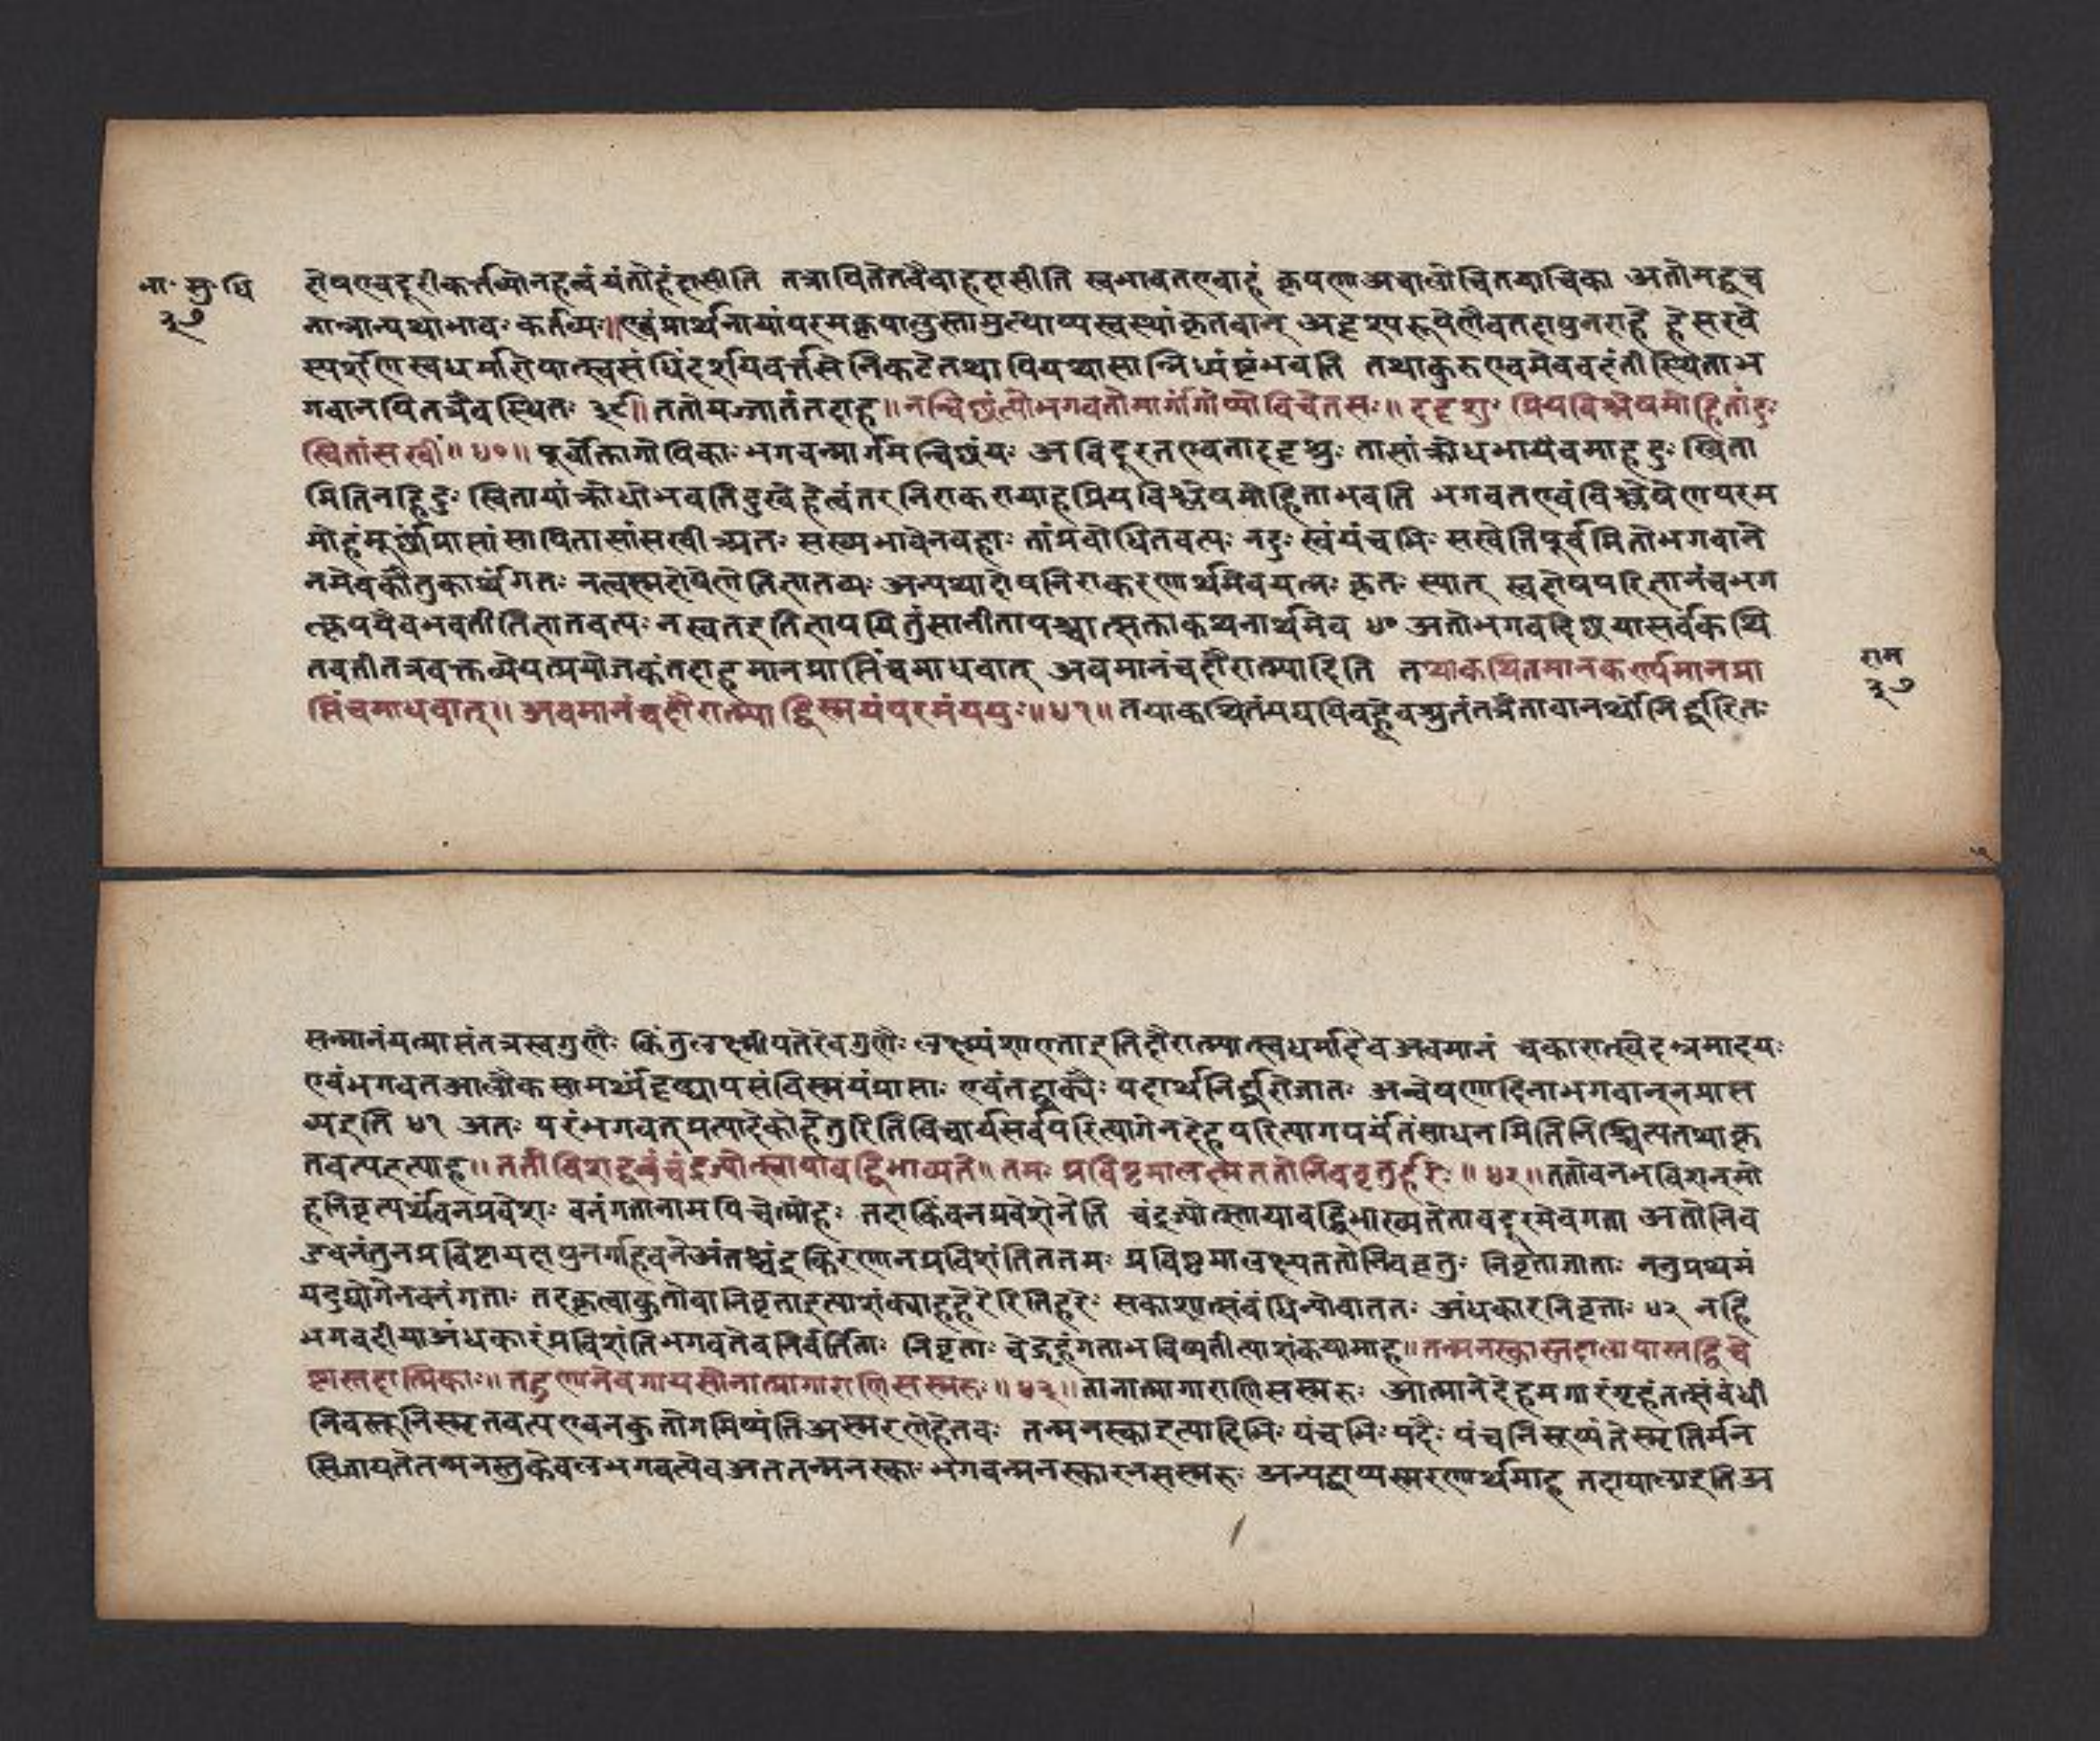 भा॰ सु॰ धि
३७
दोषएवदूरीकर्त्तव्योनहत्वंयतोहंदासीति तत्रापितेतवैवाहदासीति स्वभावतएवाहं कृपणाअवालोचितयाचिका अतोमद्वच
नान्नान्यथाभावः कर्तव्यः॥एवंप्रार्थनायांपरमकृपालुस्तामुत्थाप्यस्वस्थांकृतवान् अदृश्यरूपेणैवतदापुनराह हेसखे
स्पर्शेण स्वधर्मारोपात्स्वसंधिंदर्शय निकटे तथापियथासान्निध्यं भवति तथाकुरुएवमेववदंतीस्थिताभ
गवानपितत्रैवस्थितः ३९॥ ततोयज्जातंतदाह॥ नन्विछंत्योभगवतोमार्गंगोप्योविचेतसः॥ ददृशुः प्रियविश्लेषमोहितांदुः
खितांसखीं॥ ४०॥ पूर्वोक्तागोपिकाः भगवन्मार्गमन्विछंत्यः अविदूरतएवतांददृशुः तासांक्रोधभावमेवमाह दुः खिता
मितिनहिदुः खितायांक्रोधोभवतिदुखेहेत्वंतरनिराकरायाहप्रियविश्लेषमोहिताभवति भगवतएवंविश्लेषेणपरम
मोहंमूर्छांप्राप्तांसापितासांसखीअतः सख्यभावेनवद्धाः तांप्रबोधितवत्यः नदुः खंपंचभिः सखेतिपूर्वमितोभगवाने
नमेवकौतुकार्थंगतः नत्वस्मद्दोषेणेतिज्ञातव्यः अन्यथादोषनिराकरणार्थमेवयत्नः कृतः स्यात् स्वदोषपरिज्ञानंचभग
त्कृपयैवभवतीतिज्ञातवत्यः नस्वतइतिज्ञापयितुंसानीतापश्चात्सक्ताकथनार्थमेव ४० अतोभगवदिछयासर्वंकथि
तवतीतत्रवक्तव्येयत्प्रयोजकंतदाह मानप्राप्तिंचमाधवात् अवमानंचदौरात्म्यादिति तयाकथितमाकर्ण्यमानप्रा
प्तिंचमाधवात्॥ अवमानंचदौरात्म्याद्विस्मयंपरमंययुः॥ ४१॥ तयाकथितंयद्यपिवह्वेवश्रुतंतत्रैतावानर्थोनिर्द्धारितः
राम
३७
सन्मानंयत्प्राप्तंतन्नस्वगुणैः किंतुलक्ष्मीपतेरेवगुणैः लक्ष्म्यंशाएताइतिदौरात्म्यात्स्वधर्मादेवअवमानं चकारात्खेदभ्रमादयः
एवंभगवतआलौकसामर्थ्यंदृष्ट्वापरंविस्मयंप्राप्ताः एवंतद्वाक्यैः पदार्थनिर्द्धारोजातः अन्वेषणादिनाभगवान्नप्राप्त
व्यइति ४१ अतः परंभगवत्प्रत्यादेकोहेतुरितिविचार्यसर्वपरित्यागेनदेहपरित्यागपर्यंतंसाधनमितिनिश्चित्यतथाकृ
तवत्यइत्याह॥ ततोविशन्वनंचंद्रज्योत्स्नायावद्विभाव्यते॥ तमः प्रविष्टमालक्ष्यततोनिववृतुर्हरेः॥ ४२॥ ततोवनमविशन्मो
हनिवृत्यर्थंवनप्रवेशः वनंगतानामपिचेन्मोहः तदाकिंवनप्रवेशेनेति चंद्रज्योत्स्नायावद्विभाव्यतेतावद्दूरमेवगता अतोनिव
वनंतुनप्रविष्टायतः पुनर्गाढवनेअंतश्चंद्रकिरणानप्रविशंतिततमः प्रविष्टमालक्ष्यततोनिववृतुः निवृताजाताः ननुप्रथमं
यदुद्योगेनवनंगताः तदकृत्वाकुतोवानिवृताइत्याशंक्याहहरेरितिहरेः सकाशात्संबंधिन्योवाततः अंधकारनिवृताः ४२ नहि
भगवदीयाअंधकारंप्रविशंतिभगवतेवनिवर्तिताः निवृताः चेद्गृहंगताभविष्यतीत्याशंकयामाह॥ तन्मनस्कास्तदालापास्तद्विचे
ष्टास्तदात्मिकाः॥ तद्गुणानेवगायंत्योनात्मागाराणिसस्मरुः॥ ४३॥ तानात्मागाराणिसस्मरुः आत्मानंदेहमगारंगृहंतत्संबंधी
निवस्तूनिस्मृतवत्यएवनकुतोगमिष्यंतिअस्मरणेहेतवः तन्मनस्काइत्यादिभिः पंचभिः पदैः पंचनिरूप्यंतेस्मृतिर्मन
सिजायतेतन्मनस्तुकेवलभगवत्येवअततन्मनस्काः भगवन्मनस्कारनसस्मरुः अन्यद्वाप्यस्मरणार्थमाह तदालापाइतिअ